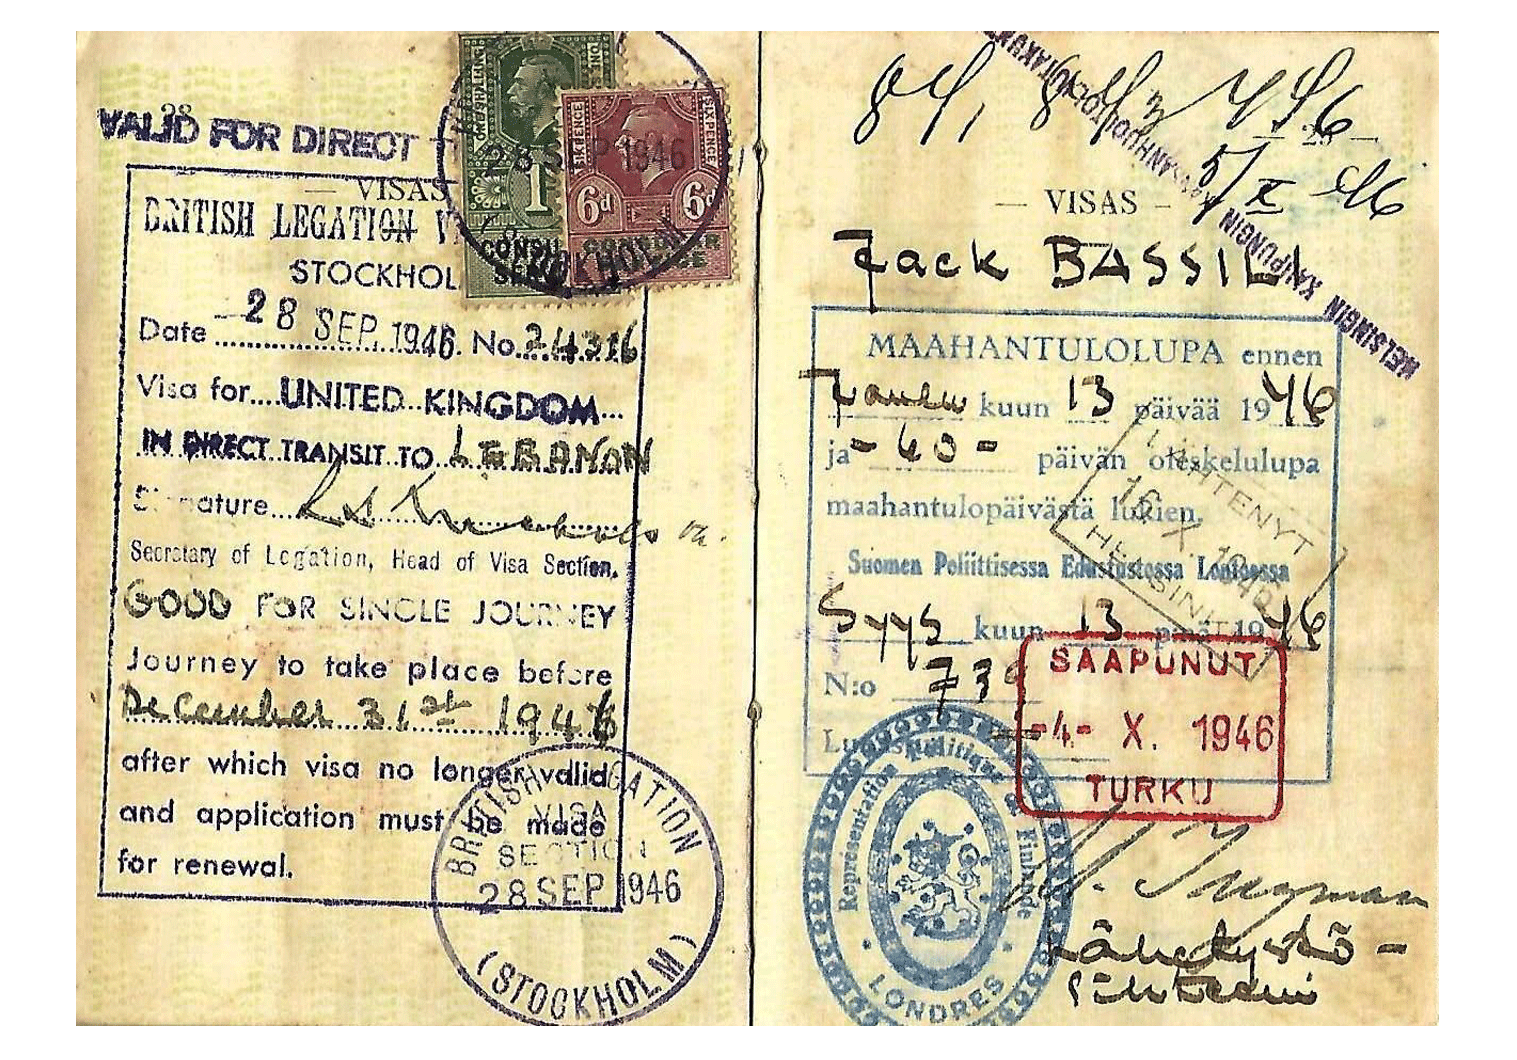 28
VALID FOR DIRECT
— VISAS
BRITISH LEGATION
STOCKHOL
Date 28 SEP. 1946. No. 24316
Visa for UNITED KINGDOM
IN DIRECT TRANSIT TO LEBANON
Signature
Secretary of Legation, Head of Visa Section.
GOOD FOR SINGLE JOURNEY
Journey to take place before
December 31st 1946
after which visa no longer valid
and application must be made
for renewal.
ONE SHILLING
1
SIX PENCE SIX PENCE
6d 6d
28 SEP 1946
STOCKHOLM
BRITISH LEGATION
VISA
SECTION
28 SEP 1946
(STOCKHOLM)
— VISAS —
5/X 46
HELSINGIN KAUPUNGIN
Jack BASSILI
MAAHANTULOLUPA ennen
kuun 13 päivää 1946
ja -40- päivän oleskelulupa
maahantulopäivästä lukien.
Suomen Poliittisessa Edustustossa Lontoossa
Syys kuun 13 p 1946
N:o
LÄHTENYT
16. X. 1946
HELSINKI
SAAPUNUT
-4- X. 1946
TURKU
Représentation Politique de Finlande
LONDRES
Lähetystö-
sihteeri